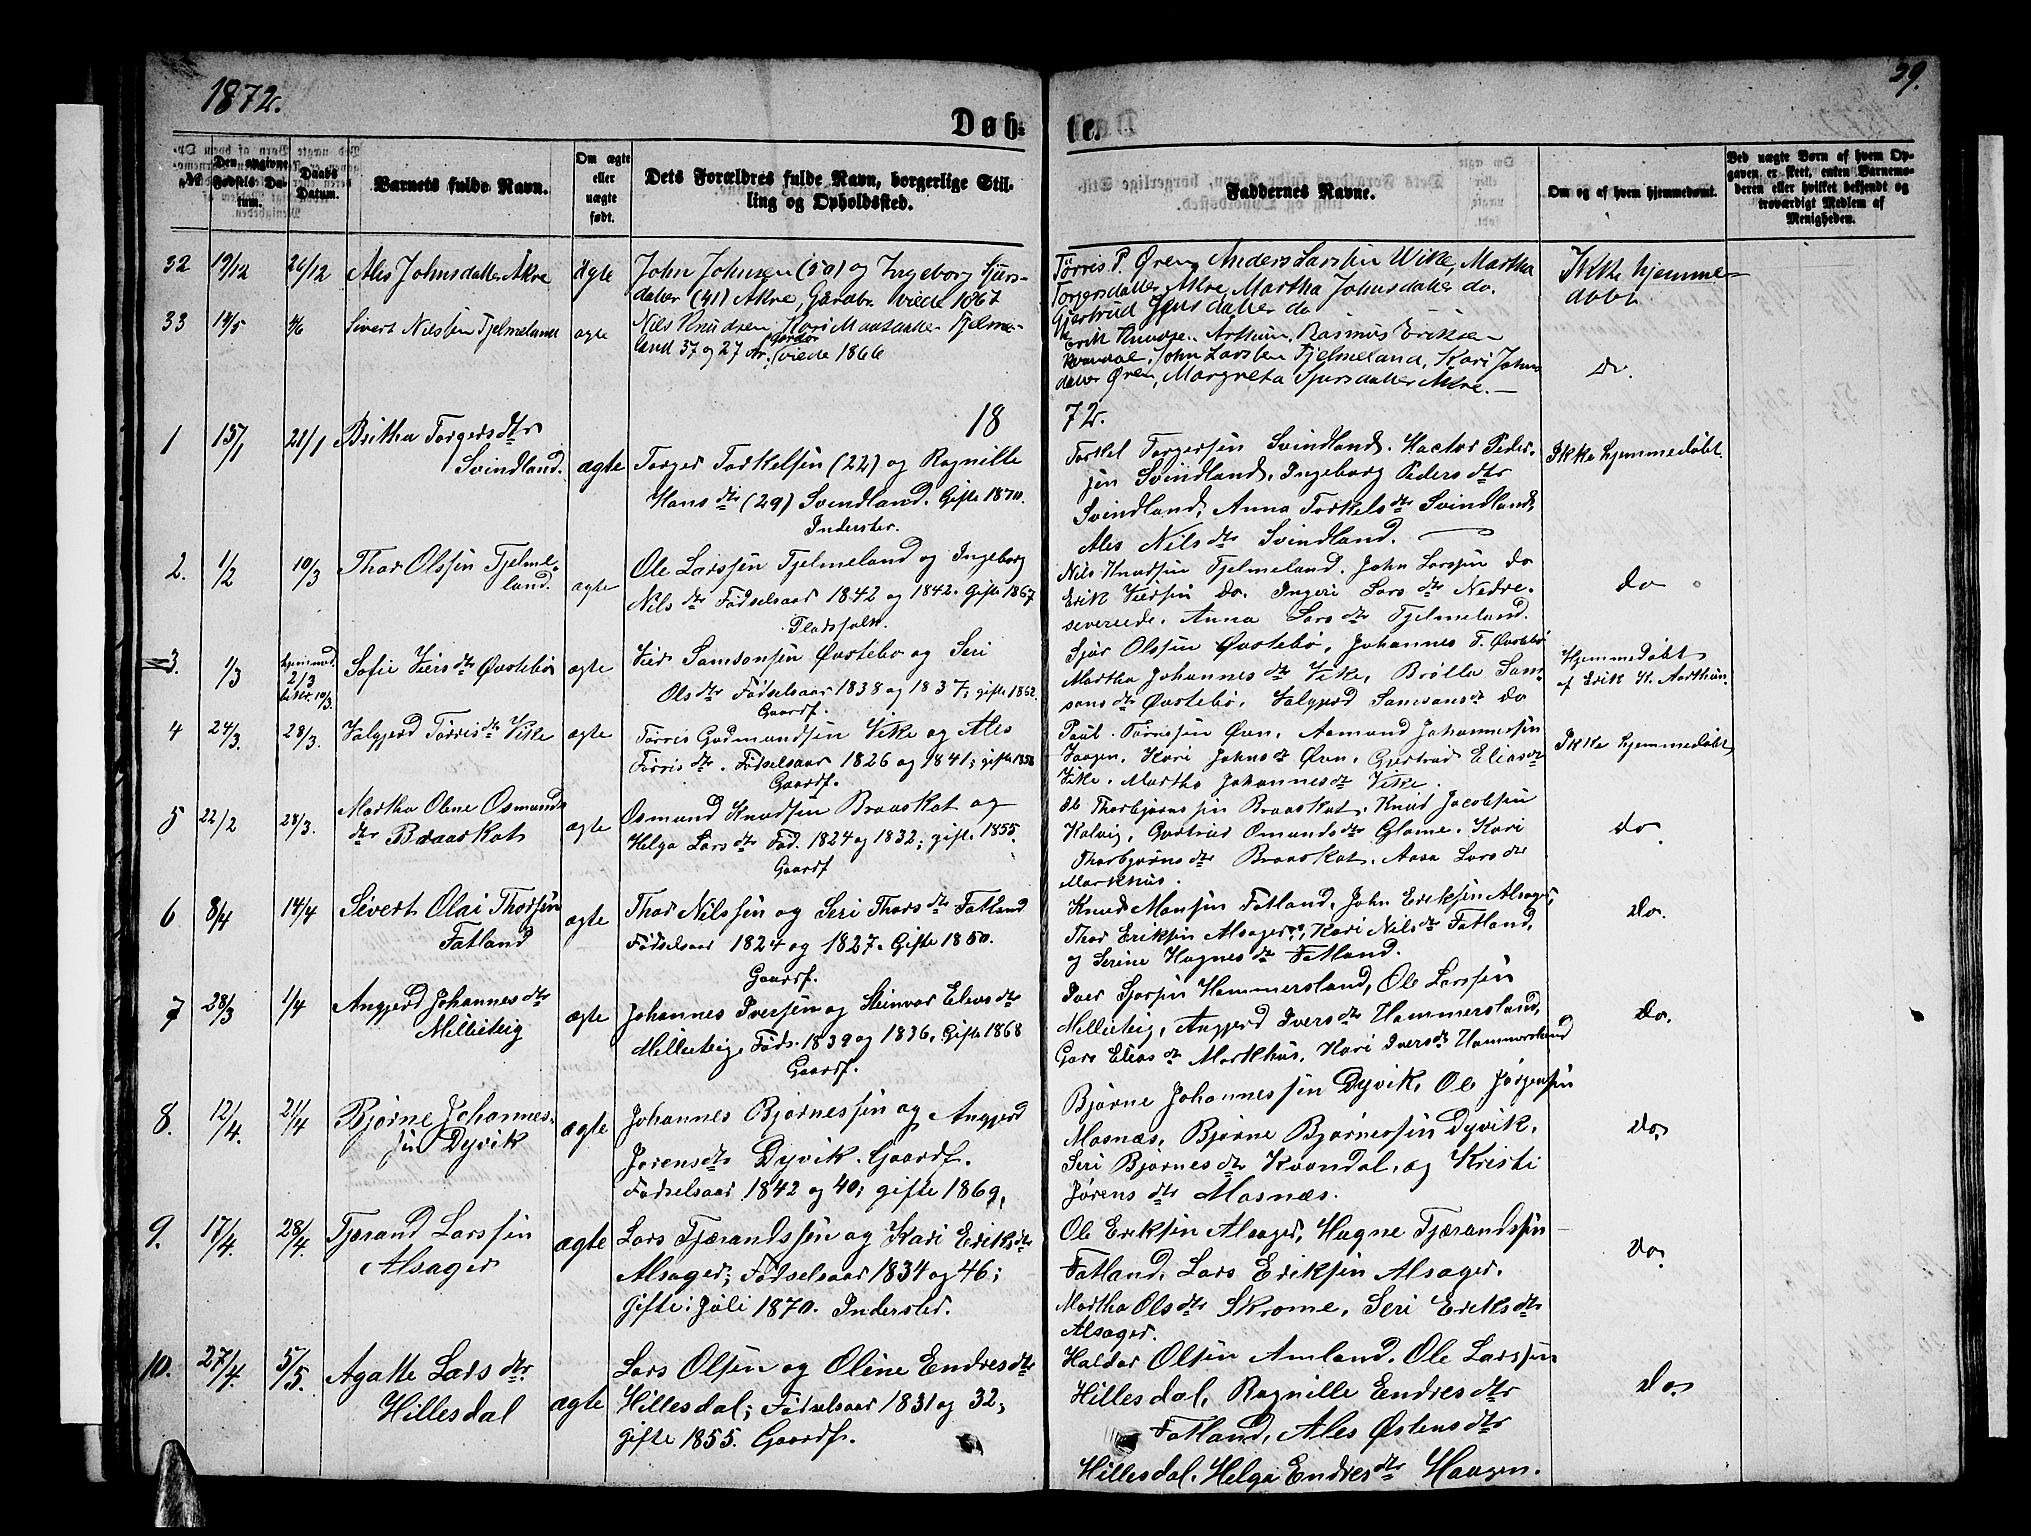 1872.
39.
Døb-
te.
№
Den angivne Fødsels Datum.
Daabs Datum.
Barnets fulde Navn.
Om ægte eller uægte født.
Dets Forældres fulde Navn, borgerlige Stilling og Opholdssted.
Faddernes Navne.
Om og af hvem hjemmedøbt.
Ved uægte Børn af hvem Opgaven er skeet, enten Barnemoderen eller hvilket bekjendt og troværdigt Medlem af Menigheden.
32 19/12 26/12 Ales Johnsdatter Akre Ægte John Johnsen (50) og Ingeborg Sjurs-
datter (41) Akre, Gaardbr. viede 1867
Tørris P. Øren, Anders Larssen Wike, Martha
Torgersdatter Akre, Martha Johnsdatter do.
Gjertrud Sjursdatter do
Ikke hjemme-
døbt
33 14/5 Sivert Nilssen Fjelmeland ægte Nils Knudsen, Kari Monsdatter Fjelme-
land 37 og 27 Ar. viede 1866
Erik Knudse. Arthun, Rasmus Eriksen
Kvandal, John Larsten Fjelmeland, Kari Johns
datter Øren, Margreta Sjursdatter Akre.
do.
18
72.
1 15/1 21/1 Britha Torgersdtr
Svindland. ægte Torger Torkelsen (22) og Ragnille
Hansdtr (29) Svindland. Gifte 1870.
Inderster.
Torkel Torgersen Svindland. Hactor Peder-
sen Svindland, Ingeborg Pedersdtr
Svindland, Anna Torkelsdtr Svindland,
Ales Nilsdtr Svindland.
Ikke hjemmedøbt
2. 1/2 10/3 Thor Olssen Fjelme-
land. ægte Ole Larssen Fjelmeland og Ingeborg
Nilsdtr Fødselsaar 1842 og 1842. Gifte 1867
Pladsfolk.
Nils Knudsen Fjelmeland. John Larssen do
Erik Viersen do. Ingeri Larsdtr Nedre-
severiede. Anna Larsdtr Fjelmeland.
do
3. 1/3 hjemmed. 2/3 10/3. Sofie Viersdtr Øvstebø ægte Vier Samsonsen Øvstebø og Seri
Olsdtr Fødselsaar 1838 og 1837; gifte 1862.
Gaardf.
Sjur Olssen Øvstebø, Johannes T. Øvstebø
Martha Johannesdtr Vike, Brølla Sam-
sonsdtr Øvstebø, Valgjerd Samsonsdt do
Hjemmedøbt
af Erik K. Aarthun.
4 24/3. 28/3. Valgjerd Tørrisdtr Vike ægte Tørris Gudmundsen Vike og Ales
Tørrisdtr. Fødselsaar 1826 og 1841; gifte 1858
Gaardf.
Paul Tørrissen Øren, Aamund Johannessen
Haagen, Kari Johnsdt Øren, Gjertrud Eliasdtr
Vike, Martha Johannesdt Vike.
Ikke hjemmedøbt
5 22/2 28/3. Martha Oline Osmunds
dtr Braaskat ægte Osmund Knudsen Braaskat og
Helga Larsdtr Fød. 1824 og 1832; gifte 1855.
Gaardf
Ole Thorbjørnssen Braaskat, Knud Jacobsen
Kalvig, Gjertrud Osmundsdtr Glame. Kari
Thorbjørnsdtr Braaskat, Aasa Larsdtr
Markhus.
do.
6 8/4 14/4 Sivert Olai Thorsen
Fatland ægte Thor Nilssen og Seri Thorsdtr Fatland
Fødselsaar 1824 og 1827. Gifte 1850.
Gaardf.
Knud Monsen Fatland, John Eriksen Alsager,
Thor Eriksen Alsager, Kari Nilsdtr Fatland,
og Serine Hagnesdtr Fatland.
do.
7 28/3 1/4 Angjerd Johannesdtr
Millieteig ægte Johannes Iversen og Steinvor Eliasdtr
Millieteig, Føds. 1839 og 1836, Gifte 1868
Gaardf.
Iver Sjursen Hammersland, Ole Larssen
Millieteig, Angjerd Iversdtr Hammersland,
Guro Eliasdtr Markhus, Kari Iversdt Hammersland
do.
8. 12/4. 21/4 Bjørne Johannes-
sen Dyvik ægte Johannes Bjørnessen og Angjerd
Jørensdtr Dyvik. Gaardf.
Fødselsaar 1842 og 40; gifte 1869,
Bjørne Johannessen Dyvik, Ole Jørgensen
Mosnæs, Bjørne Bjørnessen Dyvik,
Seri Bjørnesdtr Kvandal, og Kristi
Jørensdtr Mosnæs.
do,
9. 17/4. 28/4. Tjærand Larssen
Alsager ægte Lars Tjærandssen og Kari Eriksdtr
Alsager; Fødselsaar 1834 og 46;
gifte i Juli 1870. Inderster.
Ole Eriksen Alsager, Hagne Tjærandsen
Fatland, Lars Eriksen Alsager.
Martha Olsdtr Skrome, Seri Eriksdtr
Alsager.
do.
10. 27/4. 5/5. Agatte Larsdtr
Hillesdal ægte Lars Olsen og Oline Endresdtr
Hillesdal; Fødselsaar 1831 og 32,
gifte 1855. Gaardf.
Haldor Olsen Amland, Ole Larssen
Hillesdal, Ragnille Endresdtr
Fatland, Ales Østensdtr
Hillesdal. Helga Endresdtr Haagen.
do.